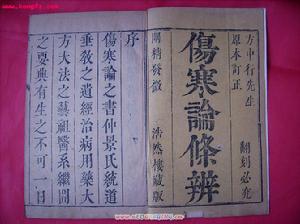 方中行先生
原本訂正
傷寒論條辨
翻刻必究
闡精發微
浩然樓藏版
序
傷寒論之書仲景氏統道
垂教之遺經治病用藥大
方大法之藝祖醫系繼開
之要典有生之不可一日
www.kongfz.com